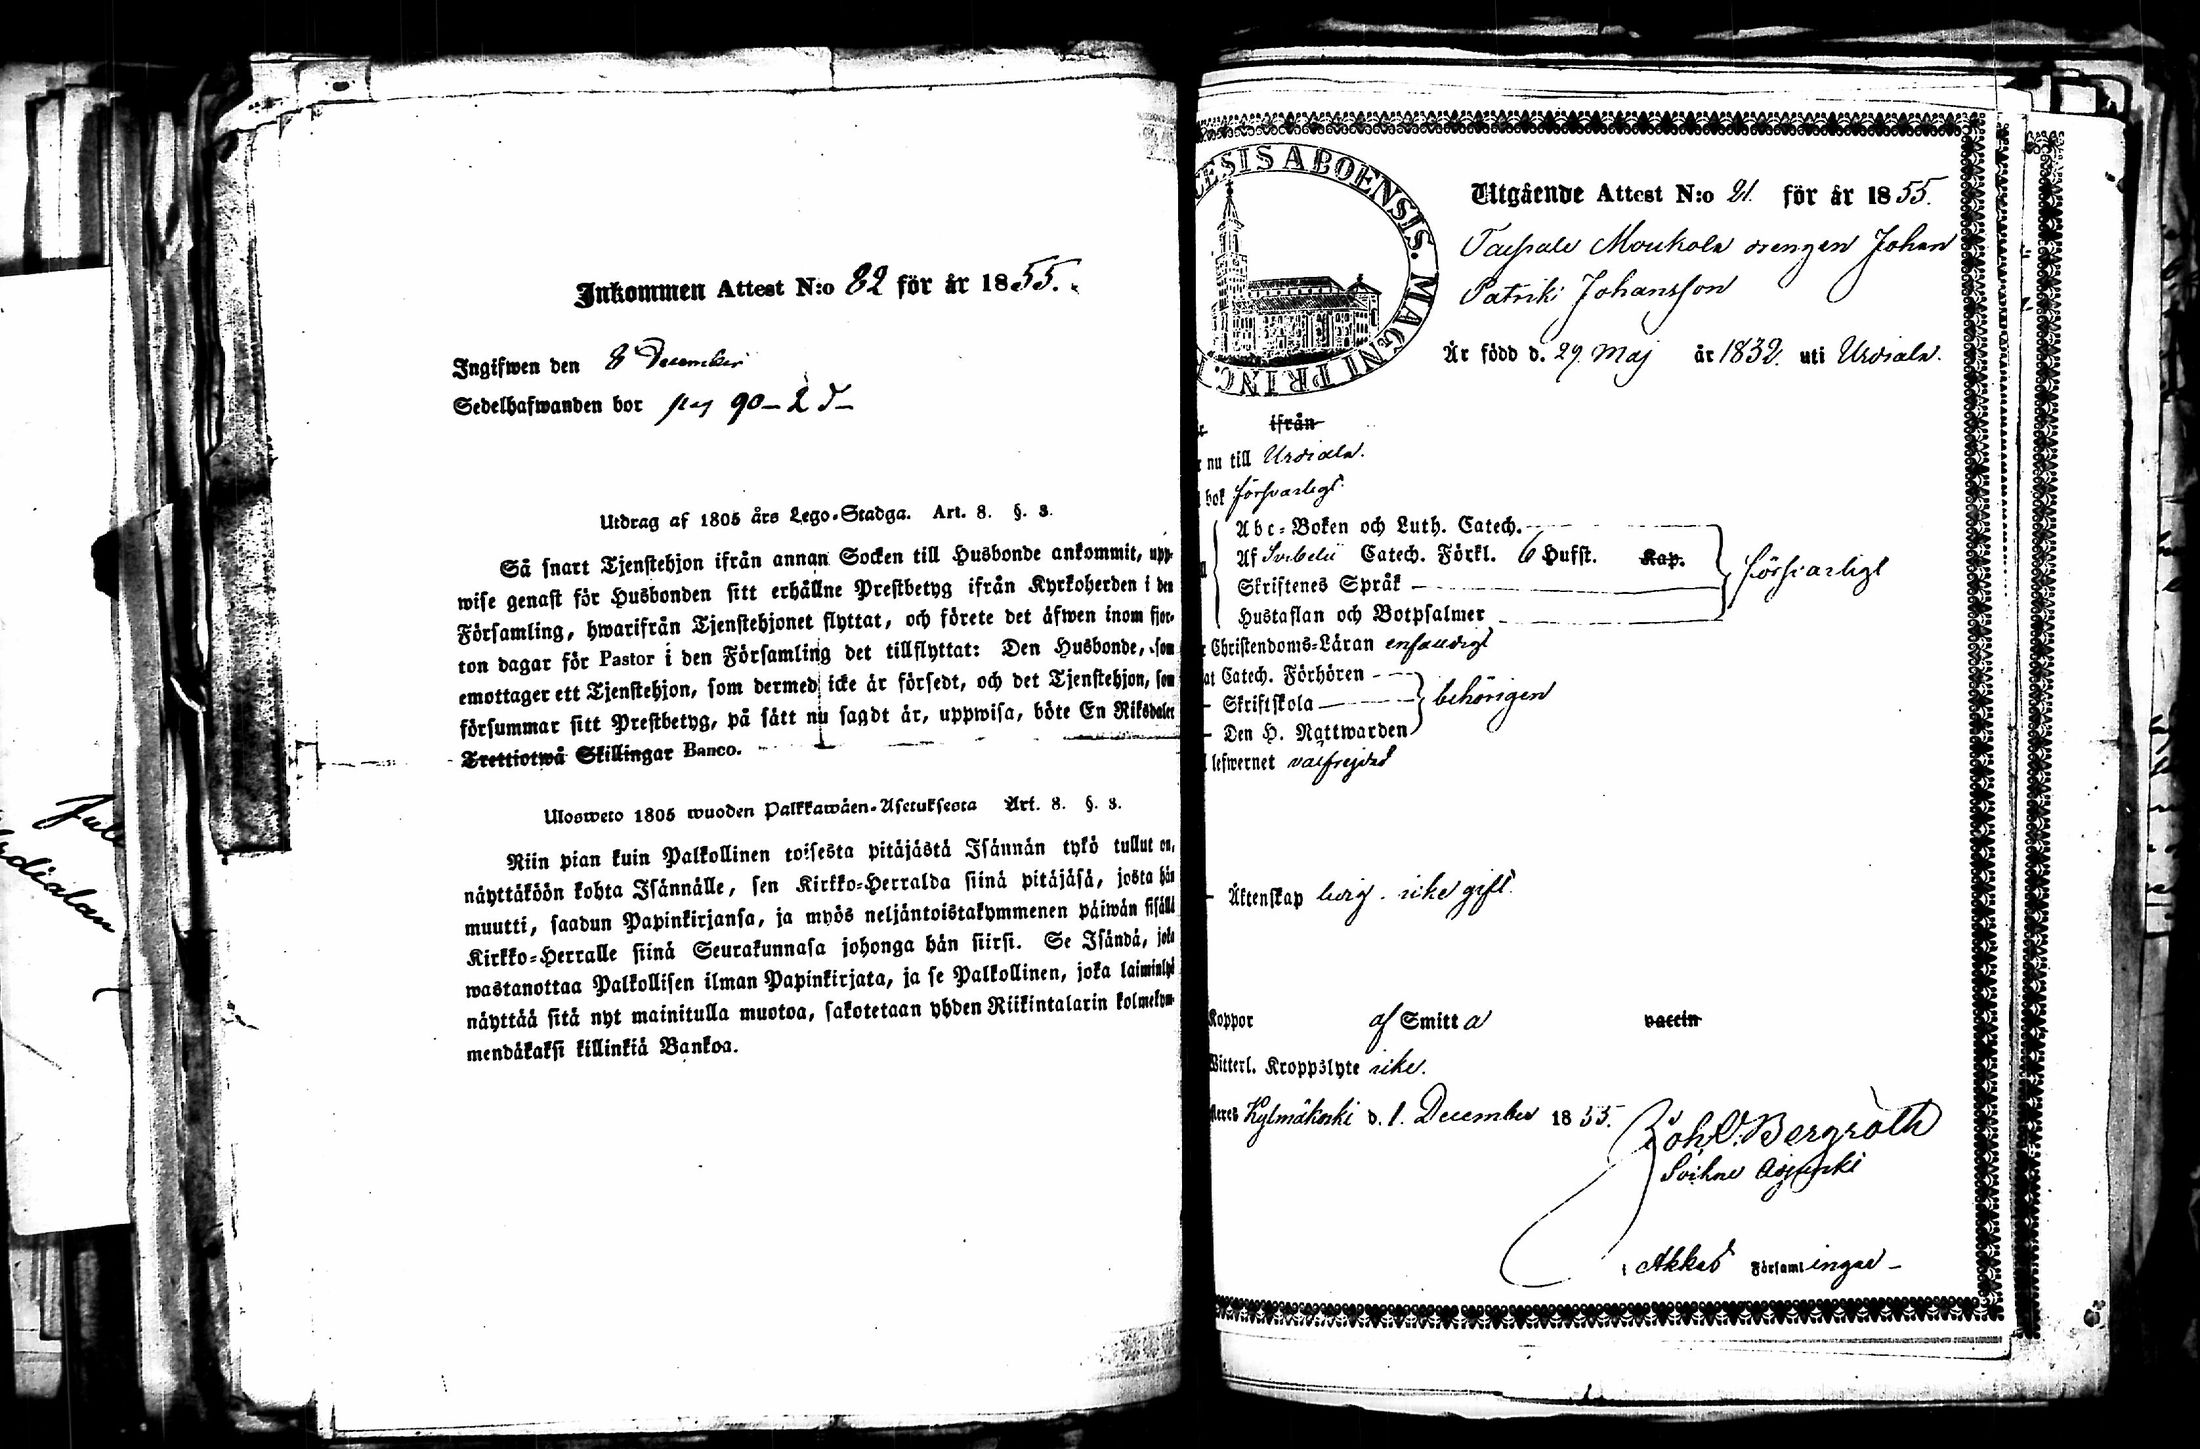 Inkommen Attest N:o 82 för år 1855.
Ingifwen den 8 December
Sedelhafwanden bor pag 90-2 d-
Utdrag af 1805 års Lego-Stadga. Art. 8. §. 3.
Så snart Tjenstehjon ifrån annan Socken till Husbonde ankommit, upp-
wise genast för Husbonden sitt erhållne Prestbetyg ifrån Kyrkoherden i den
Församling, hwarifrån Tjenstehjonet flyttat, och förete det äfwen inom fjor-
ton dagar för Pastor i den Församling det tillflyttat: Den Husbonde, som
emottager ett Tjenstehjon, som dermed icke är försedt, och det Tjenstehjon, som
försummar sitt Prestbetyg, på sätt nu sagdt är, uppwisa, böte En Riksdaler
Trettiotwå Skillingar Banco.
Ulosweto 1805 wuoden Palkkawäen-Asetuksesta Art. 8. §. 3.
Niin pian kuin Palkollinen toisesta pitäjästä Isännän tykö tullut on,
näyttäköön kohta Isännälle, sen Kirkko-Herralda siinä pitäjäsä, josta hän
muutti, saadun Papinkirjansa, ja myös neljäntoistakymmenen päiwän sisällä
Kirkko-Herralle siinä Seurakunnasa johonga hän siirsi. Se Isändä, joka
wastanottaa Palkollisen ilman Papinkirjata, ja se Palkollinen, joka laiminlyö
näyttää sitä nyt mainitulla muotoa, sakotetaan yhden Riikintalarin kolmekym-
mendäkaksi killinkiä Bankoa.
ESIS ABOENSIS. MAGNI PRINC.
Utgående Attest N:o 21. för år 1855.
Taipale Moukola drengen Johan
Patriki Johansson
Är född d. 29 Maj år 1832. uti Urdiala.
ifrån
nu till Urdiala.
bok försvarligt
Abc-Boken och Luth. Catech.
Af Svebelii Catech. Förkl. 6 Hufst. Kap. försvarligt
Skriftenes Språk
Hustaflan och Botpsalmer
Christendoms-Läran enfaldigt
at Catech. Förhören
Skriftskola behörigen
Den H. Nattwarden
lefwernet välfrejdad
Äktenskap ledig. icke gift.
Koppor af Smitta vaccin
Witterl. Kroppslyte icke.
Kylmäkoski d. 1. December 1855.
Joh. O. Bergroth
i Akkas Församlingar